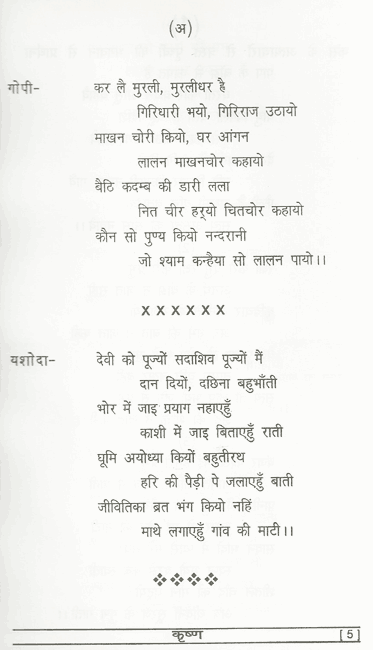 (अ)
गोपी- कर लै मुरली, मुरलीधर है
गिरिधारी भयो, गिरिराज उठायो
माखन चोरी कियो, घर आंगन
लालन माखनचोर कहायो
बैठि कदम्ब की डारी लला
नित चीर हर्‌यो चितचोर कहायो
कौन सो पुण्य कियो नन्दरानी
जो श्याम कन्हैया सो लालन पायो।।
x x x x x x
यशोदा- देवी को पूज्यों सदाशिव पूज्यों मैं
दान दियों, दछिना बहुभाँती
भोर में जाइ प्रयाग नहाएहुँ
काशी में जाइ बिताएहुँ राती
घूमि अयोध्या कियों बहुतीरथ
हरि की पैड़ी पे जलाएहुँ बाती
जीवितिका ब्रत भंग कियो नहिं
माथे लगाएहुँ गांव की माटी।।
कृष्ण [5]